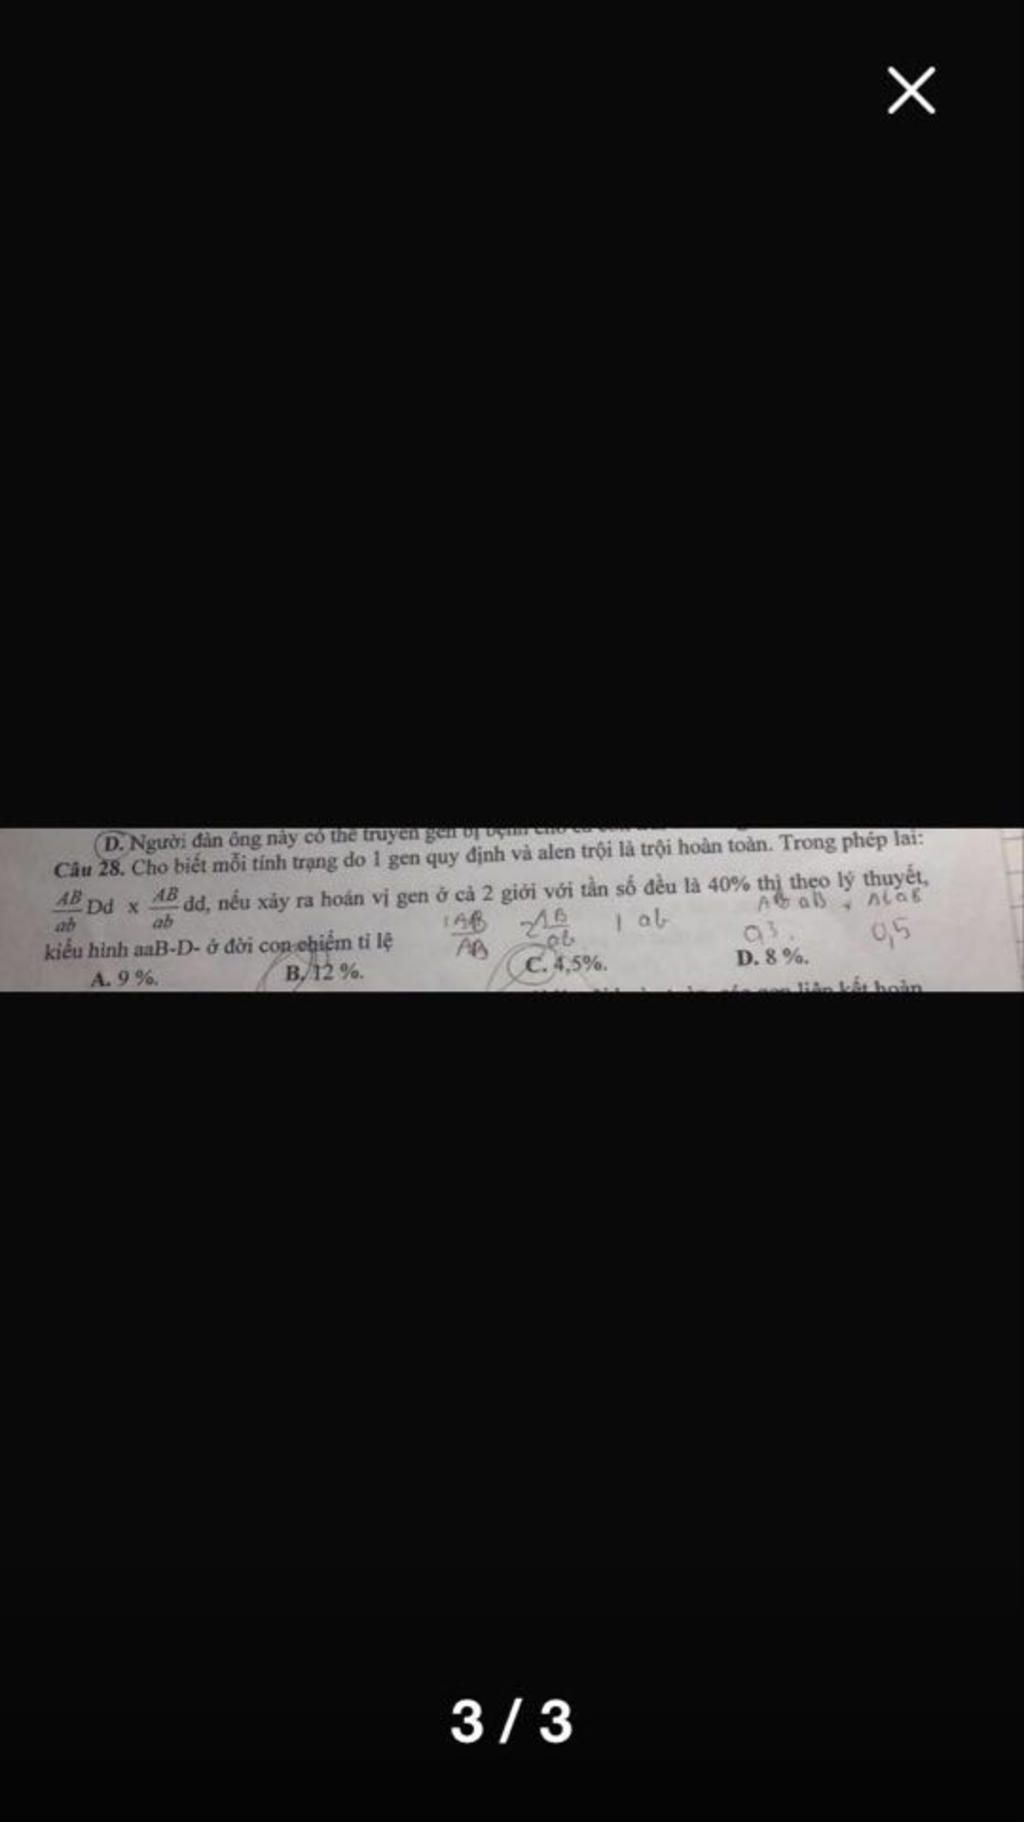 D. Người đàn ông này có thể truyền gen bị bệnh cho
Câu 28. Cho biết mỗi tính trạng do 1 gen quy định và alen trội là trội hoàn toàn. Trong phép lai:
AB/ab Dd x AB/ab dd, nếu xảy ra hoán vị gen ở cả 2 giới với tần số đều là 40% thì theo lý thuyết,
kiểu hình aaB-D- ở đời con chiếm tỉ lệ
1 AB/AB 2 AB/ab 1 ab
0,5
A. 9 %. B. 12 %. C. 4,5%. D. 8 %.
liên kết hoàn
3 / 3